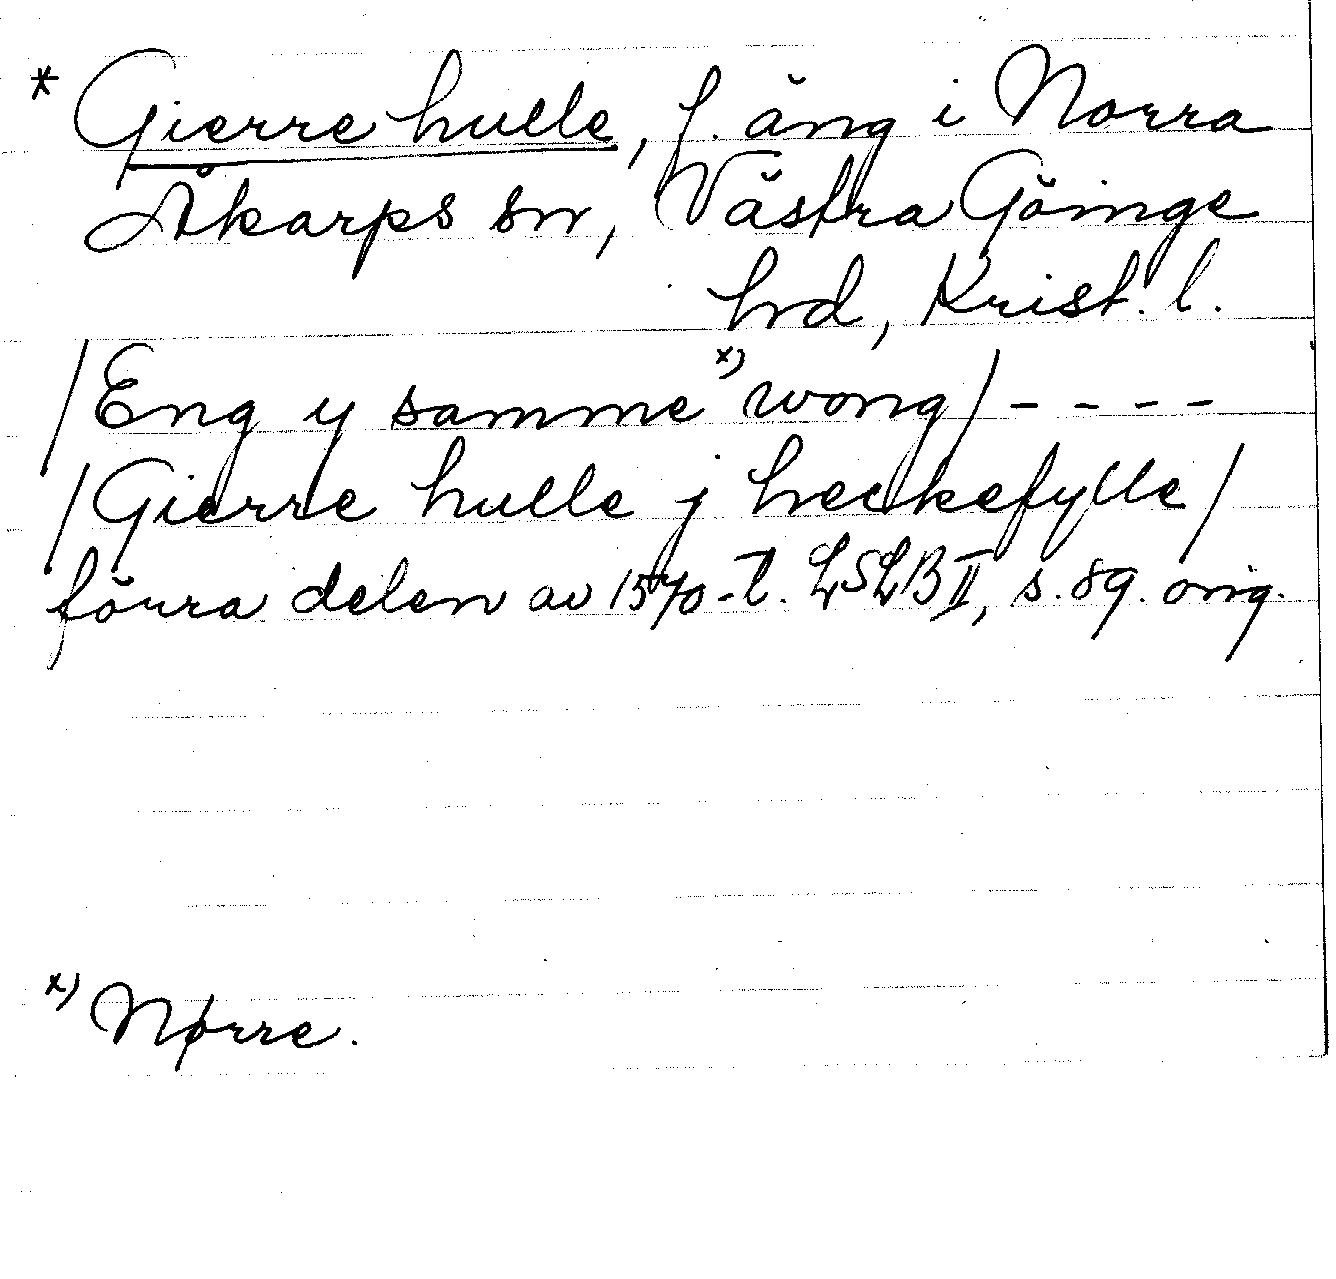 * Gierre hulle, f. äng i Norra
Åkarps sn, Västra Göinge
hd, Krist. l.
/Eng y samme x) wong/ - - - -
/Gierre hulle j heckefylle/
förra delen av 1570-t. LSLB II, s. 89. orig.
x) Nørre.